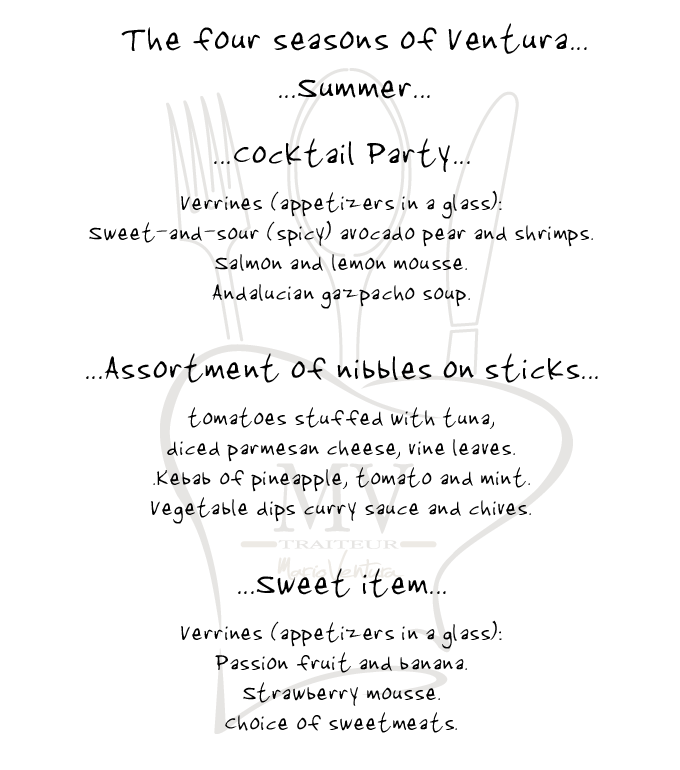 The four seasons of Ventura...
...Summer...
...Cocktail Party...
Verrines (appetizers in a glass):
Sweet-and-sour (spicy) avocado pear and shrimps.
Salmon and lemon mousse.
Andalucian gazpacho soup.
...Assortment of nibbles on sticks...
tomatoes stuffed with tuna,
diced parmesan cheese, vine leaves.
.Kebab of pineapple, tomato and mint.
Vegetable dips curry sauce and chives.
MV
TRAITEUR
Mario Ventura
...Sweet item...
Verrines (appetizers in a glass):
Passion fruit and banana.
Strawberry mousse.
Choice of sweetmeats.